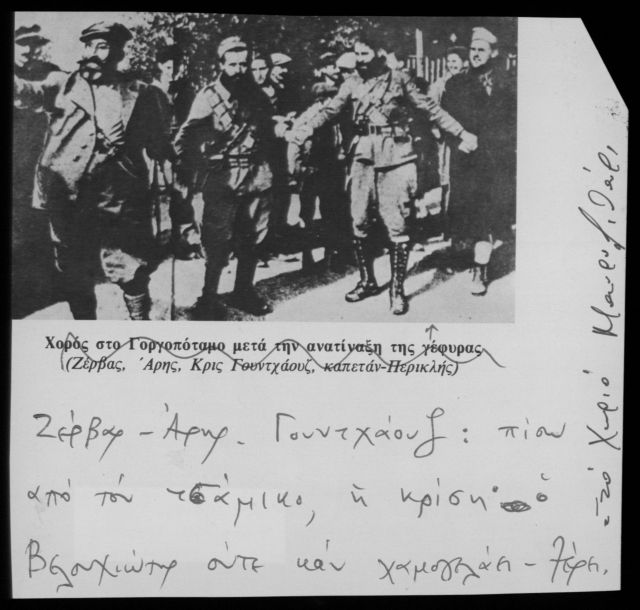 Χορός στο Γοργοπόταμο μετά την ανατίναξη της γέφυρας
(Ζέρβας, Άρης, Κρις Γουντχάουζ, καπετάν-Περικλής)
Ζέρβας - Άρης - Γουντχάουζ: πίσω
από τον τσάμικο, ἡ κρίση· ὁ
Βελουχιώτης οὔτε κάν χαμογελάει - ξέρει.
- στό χωριό Μαυρολιθάρι